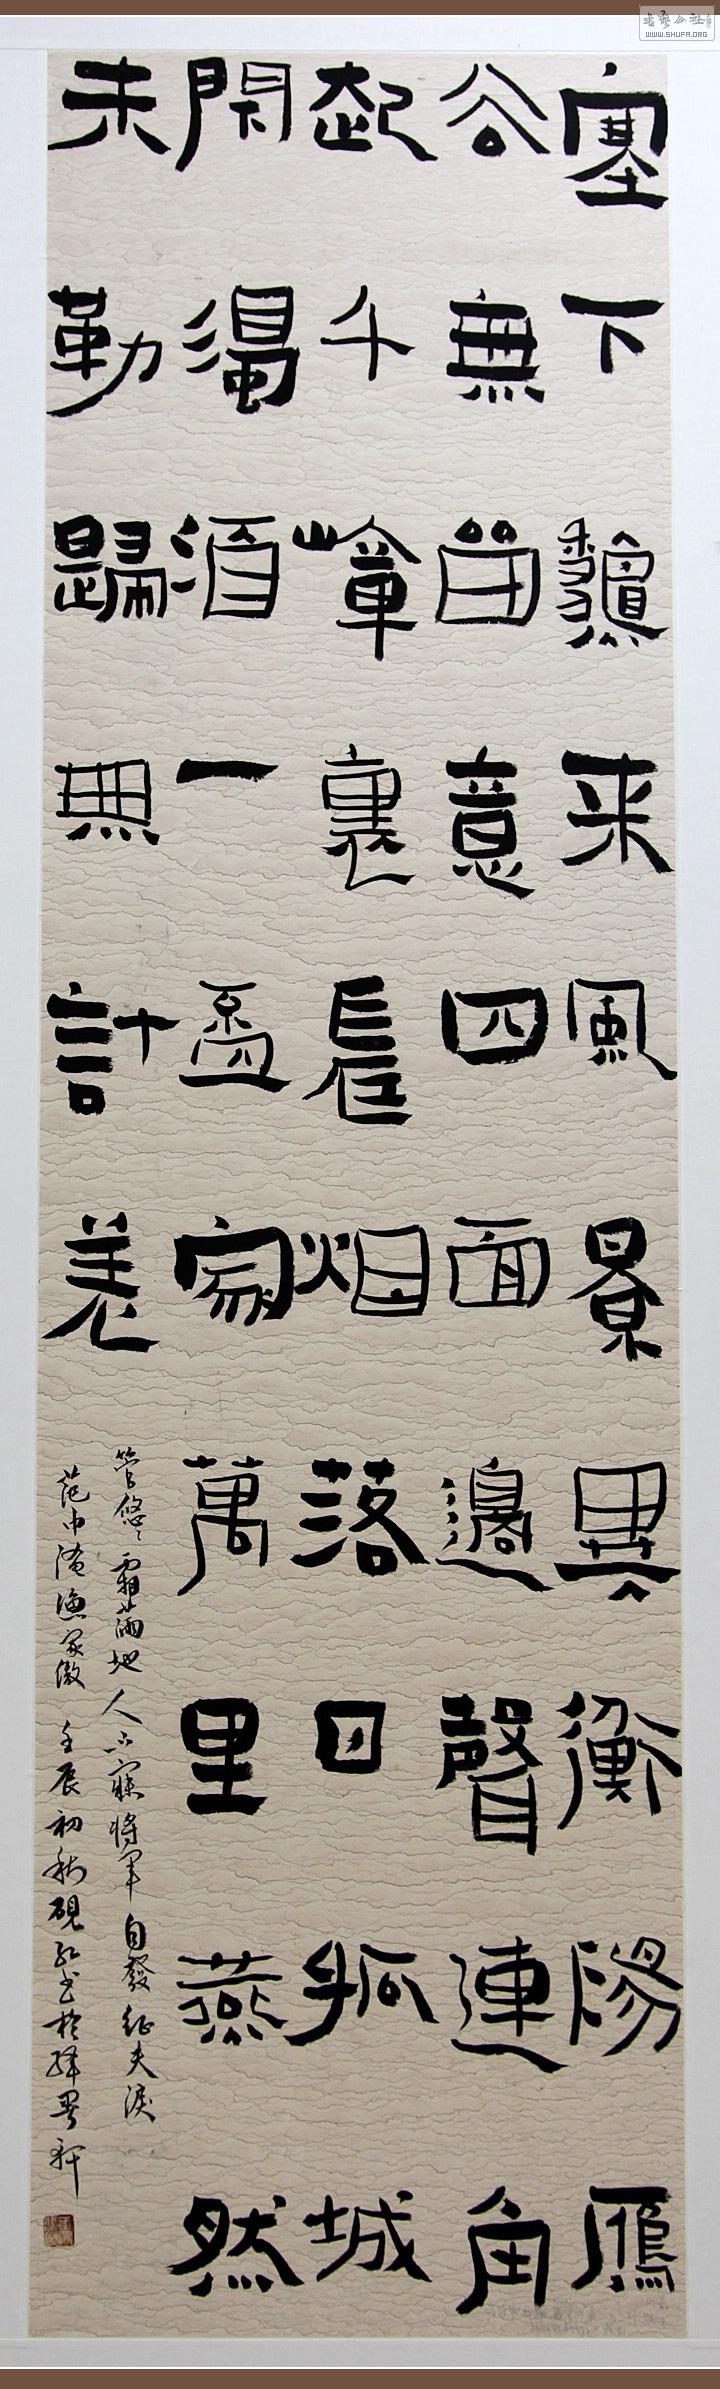 書藝公社
WWW.SHUFA.ORG
塞下龝来風景異衡陽鴈
去無留意四面邊聲連角
起千嶂裏長烟落日孤城
閇濁酒一盃家萬里燕然
未勒歸無計羌
管悠〻霜滿地人不寐將軍白發征夫淚
范中淹漁家傲 壬辰初秋硯書於墨軒